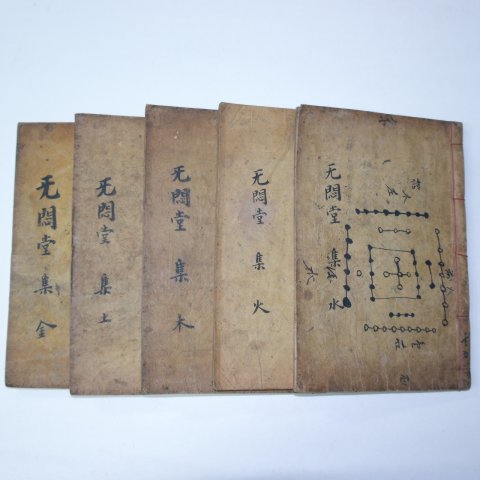 无悶堂 集 水
无悶堂 集 火
无悶堂 集 木
无悶堂 集 土
无悶堂 集 金